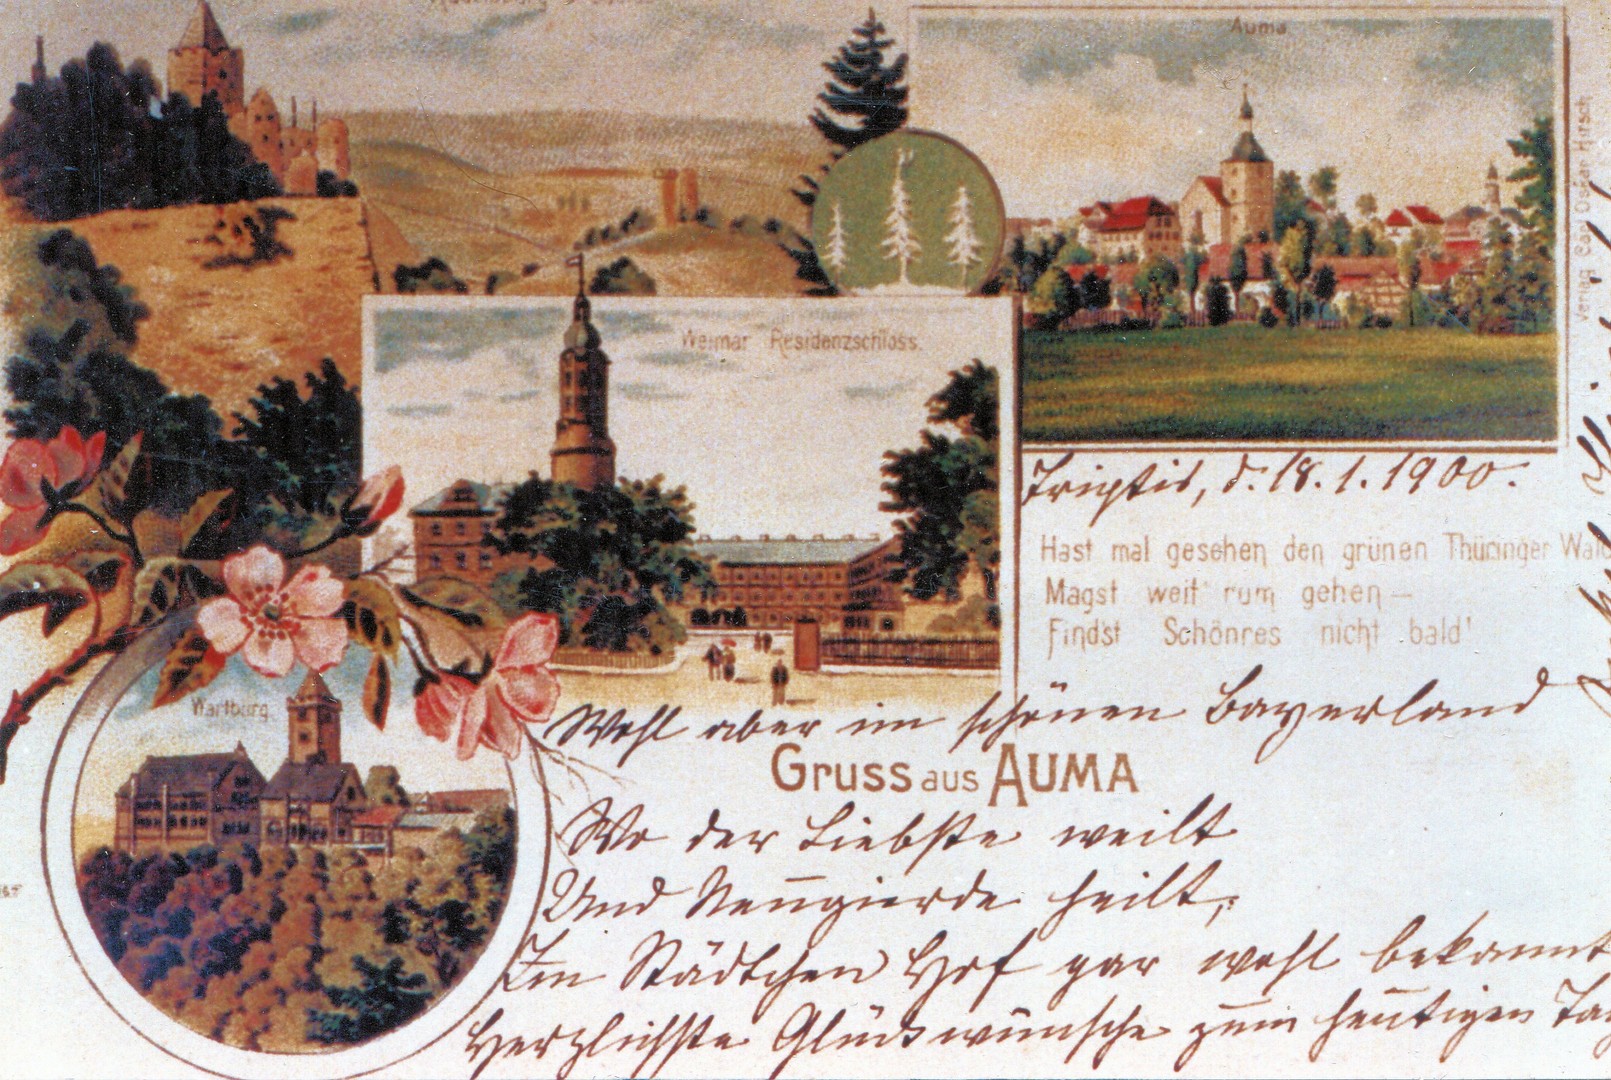 Auma
Verlag Carl Oscar Hirsch
Weimar Residenzschloss.
Triptis, d. 18.1.1900.
Hast mal gesehen den grünen Thüringer Wald
Magst weit rum gehen —
Find'st Schönres nicht bald!
Wartburg
Wohl aber im schönen Bayerland
Gruss aus AUMA
Wo der Liebste weilt
Und Neugierde heilt,
Im Städtchen Hof gar wohl bekannt
Herzlichste Glückwünsche zum heutigen Tag